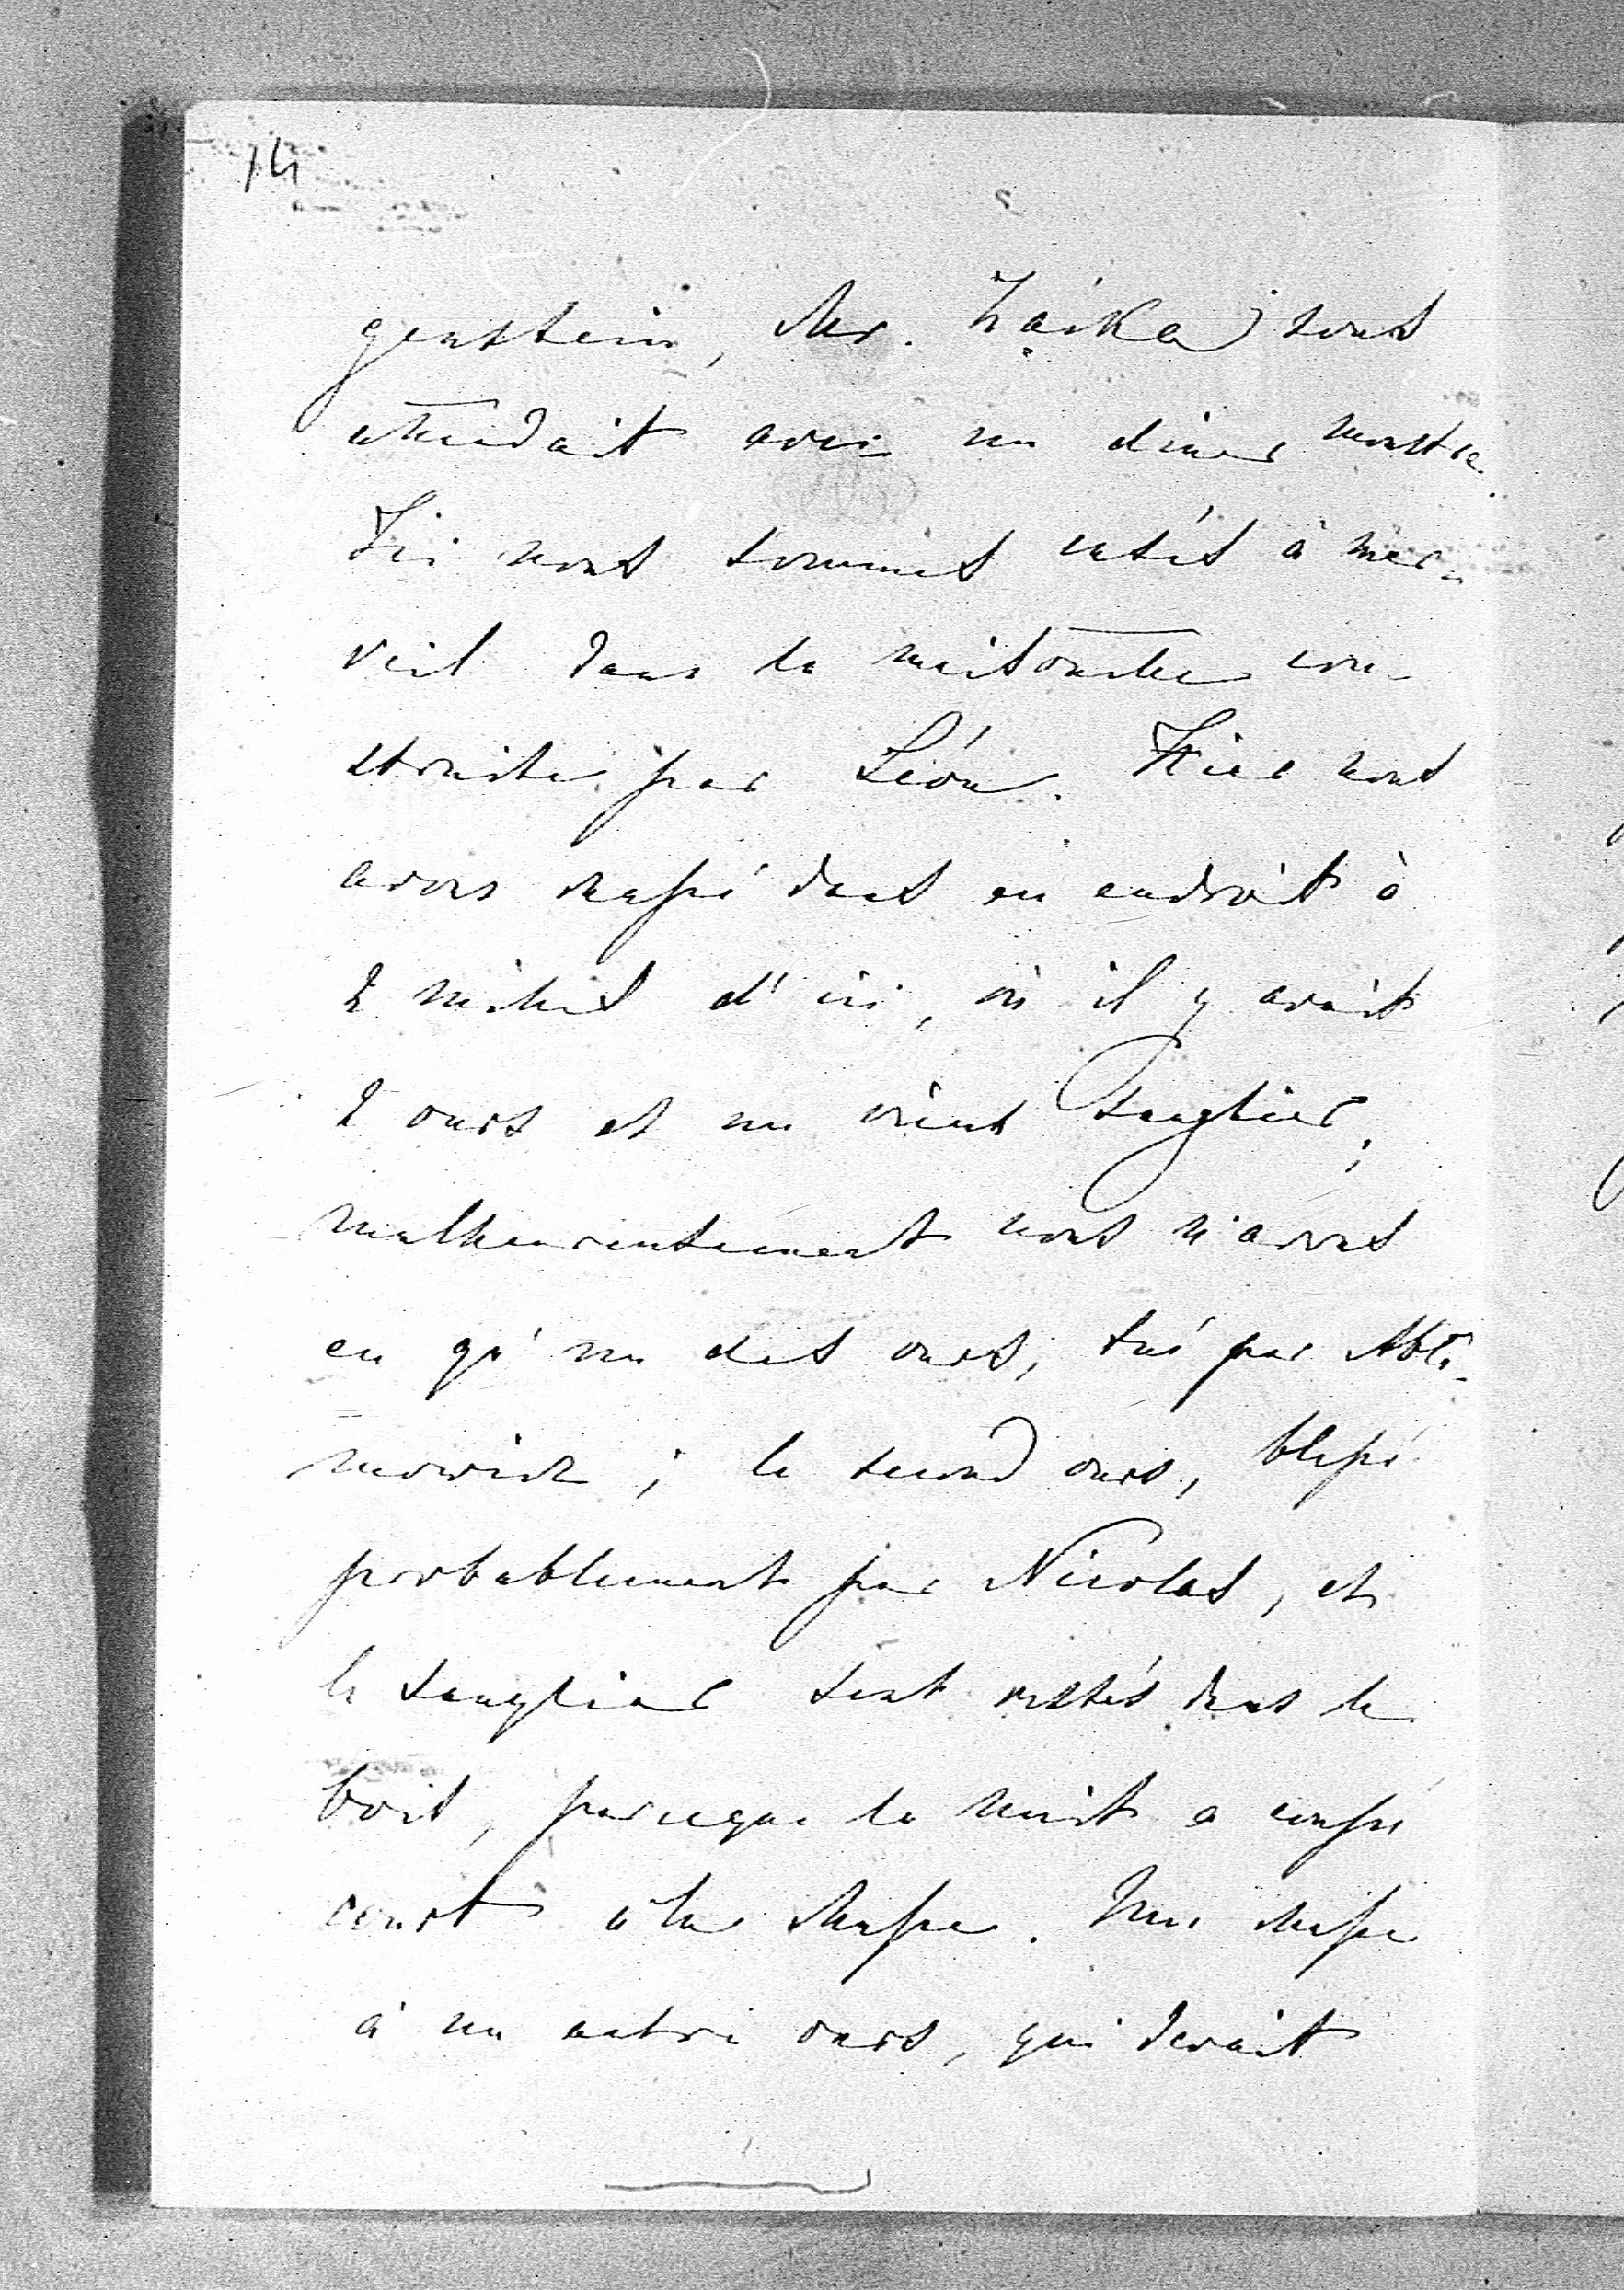 14
genstein, Mr. Zaïka) nous
attendait avec un diner monstre.
Ici nous sommes casés à mer-
veil dans la maisonette con-
struite par Léon. Hier nous
avons chassé dans un endroit à
2 milles d'ici, où il y avait
2 ours et un vieux sanglier;
malheureusement nous n'avons
eu qu'un des ours, tué par Abla-
mowicz; le second ours, blessé
probablement par Nicolas, et
le sanglier sont restés dans le
bois, parceque la nuit a coupé
court à la chasse. Une chasse
à un autre ours, qui devait